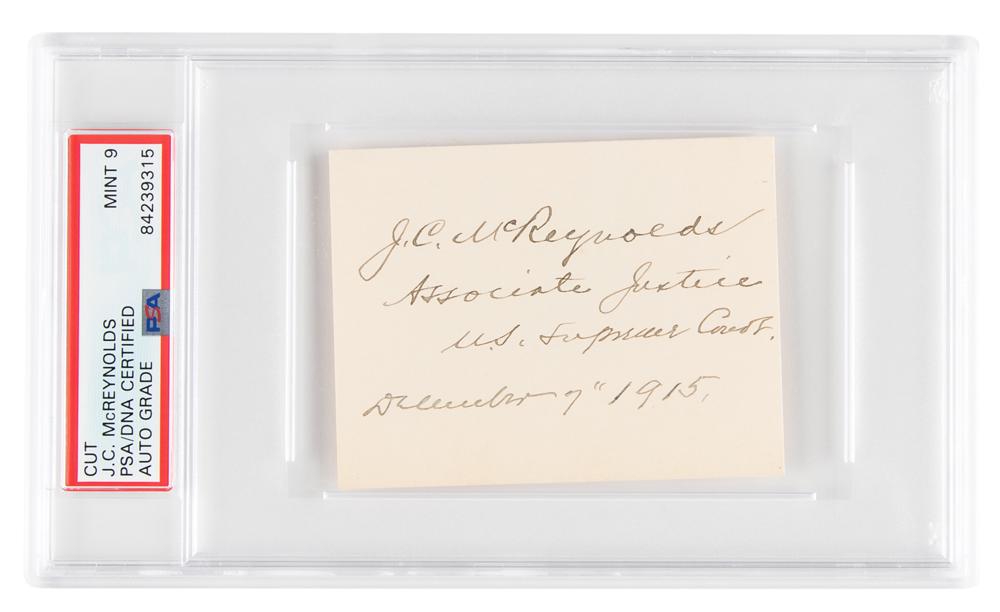 CUT
J.C. McREYNOLDS
PSA/DNA CERTIFIED
AUTO GRADE
MINT 9
84239315
PSA
J.C. McReynolds
Associate Justice
U.S. Supreme Court.
December 7" 1915.